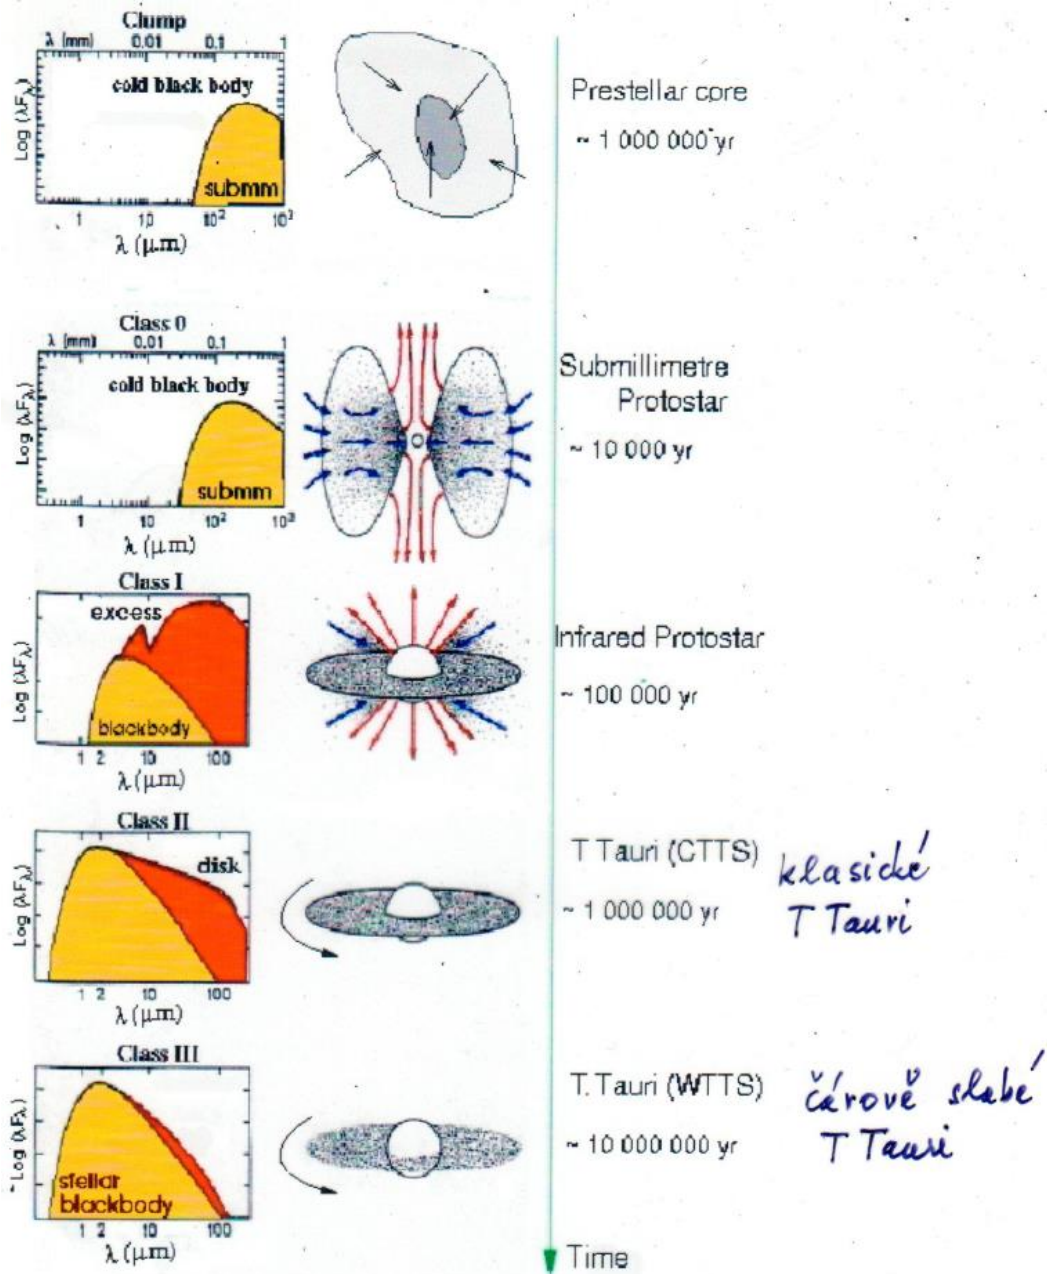 Clump
λ (mm) 0.01 0.1 1
cold black body
submm
Log (λFλ)
1 10 10² 10³
λ (μm)
Prestellar core
~ 1 000 000 yr
Class 0
λ (mm) 0.01 0.1 1
cold black body
submm
Log (λFλ)
1 10 10² 10³
λ (μm)
Submillimetre
Protostar
~ 10 000 yr
Class I
excess
blackbody
Log (λFλ)
1 2 10 100
λ (μm)
Infrared Protostar
~ 100 000 yr
Class II
disk
Log (λFλ)
1 2 10 100
λ (μm)
T Tauri (CTTS)
~ 1 000 000 yr
klasické
T Tauri
Class III
stellar
blackbody
Log (λFλ)
1 2 10 100
λ (μm)
T.Tauri (WTTS)
~ 10 000 000 yr
čárově slabé
T Tauri
Time